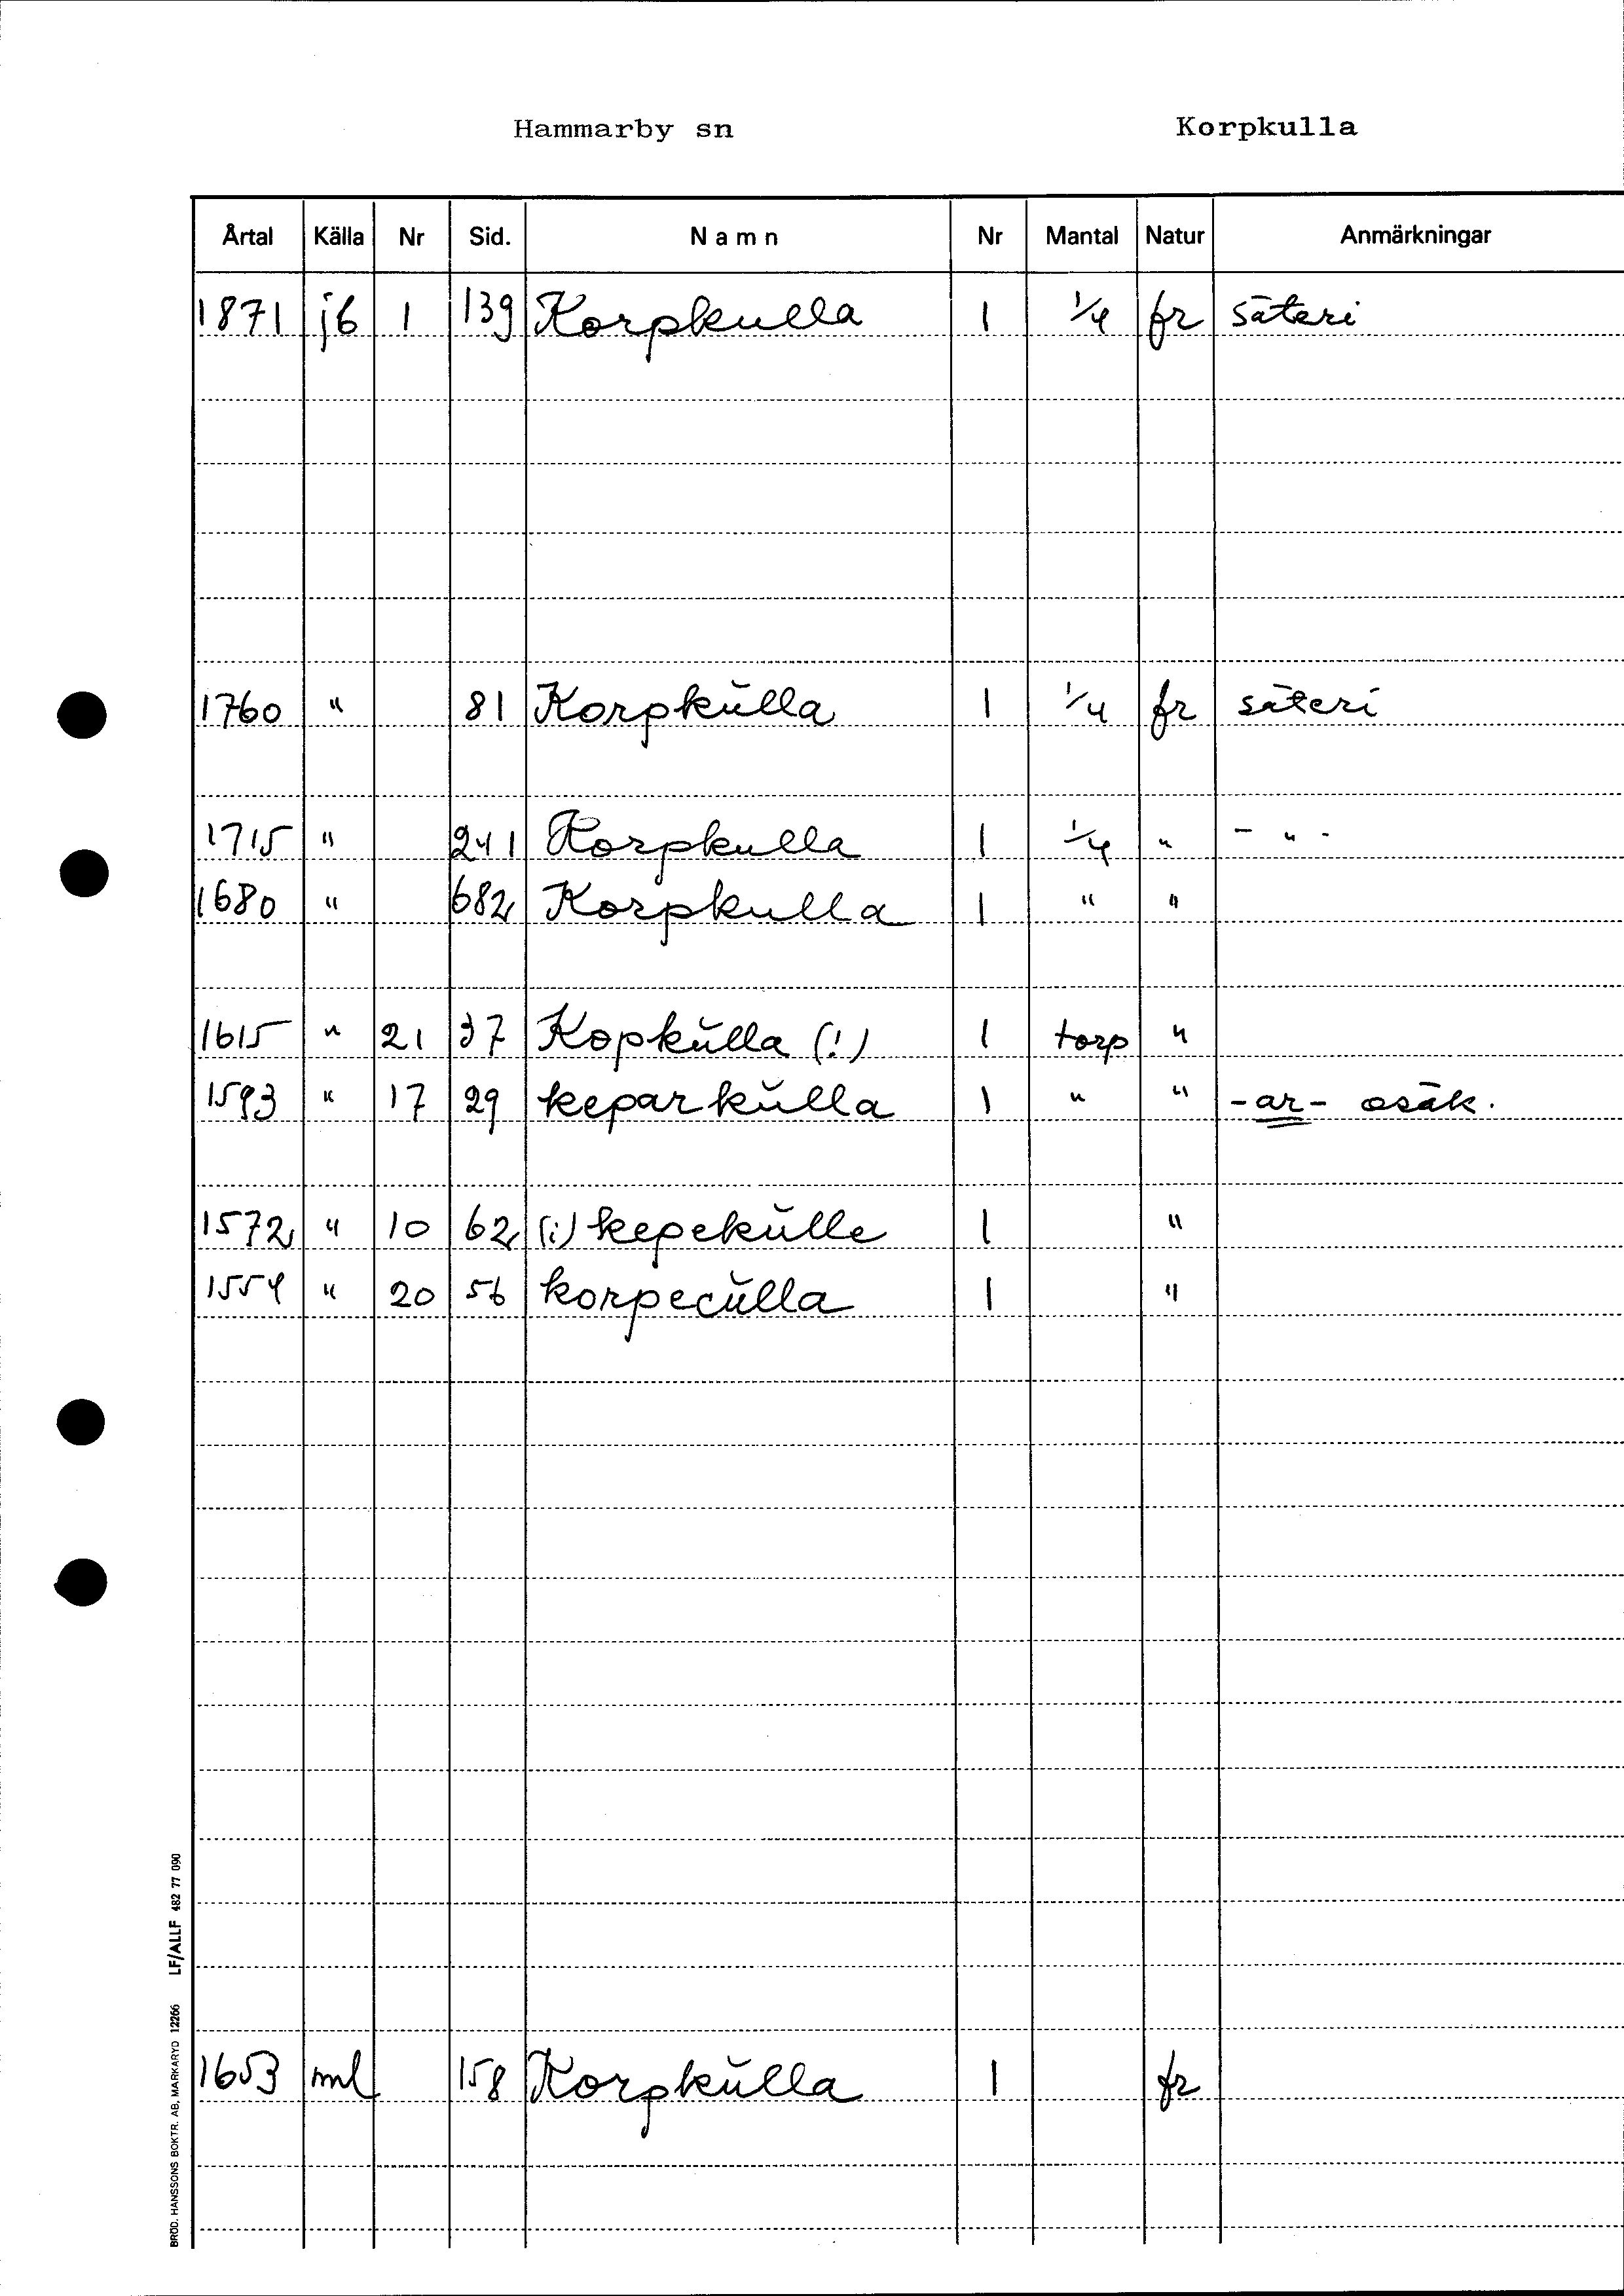 Hammarby sn Korpkulla
Årtal Källa Nr Sid. Namn Nr Mantal Natur Anmärkningar
1871 jb 1 139 Korpkulla 1 1/4 fr säteri
1760 " 81 Korpkŭlla 1 1/4 fr säteri
1715 " 241 Korpkulla 1 1/4 " - " -
1680 " 682 Korpkulla 1 " "
1615 " 21 37 Kopkŭlla (!) 1 torp "
1593 " 17 29 keparkŭlla 1 " " -ar- osäk.
1572 " 10 62 (i) kepekŭlle 1 "
1554 " 20 56 korpecŭlla 1 "
1653 ml 158 Korpkŭlla 1 fr
BRÖD. HANSSONS BOKTR. AB, MARKARYD 12266 LF/ALLF 482 77 090